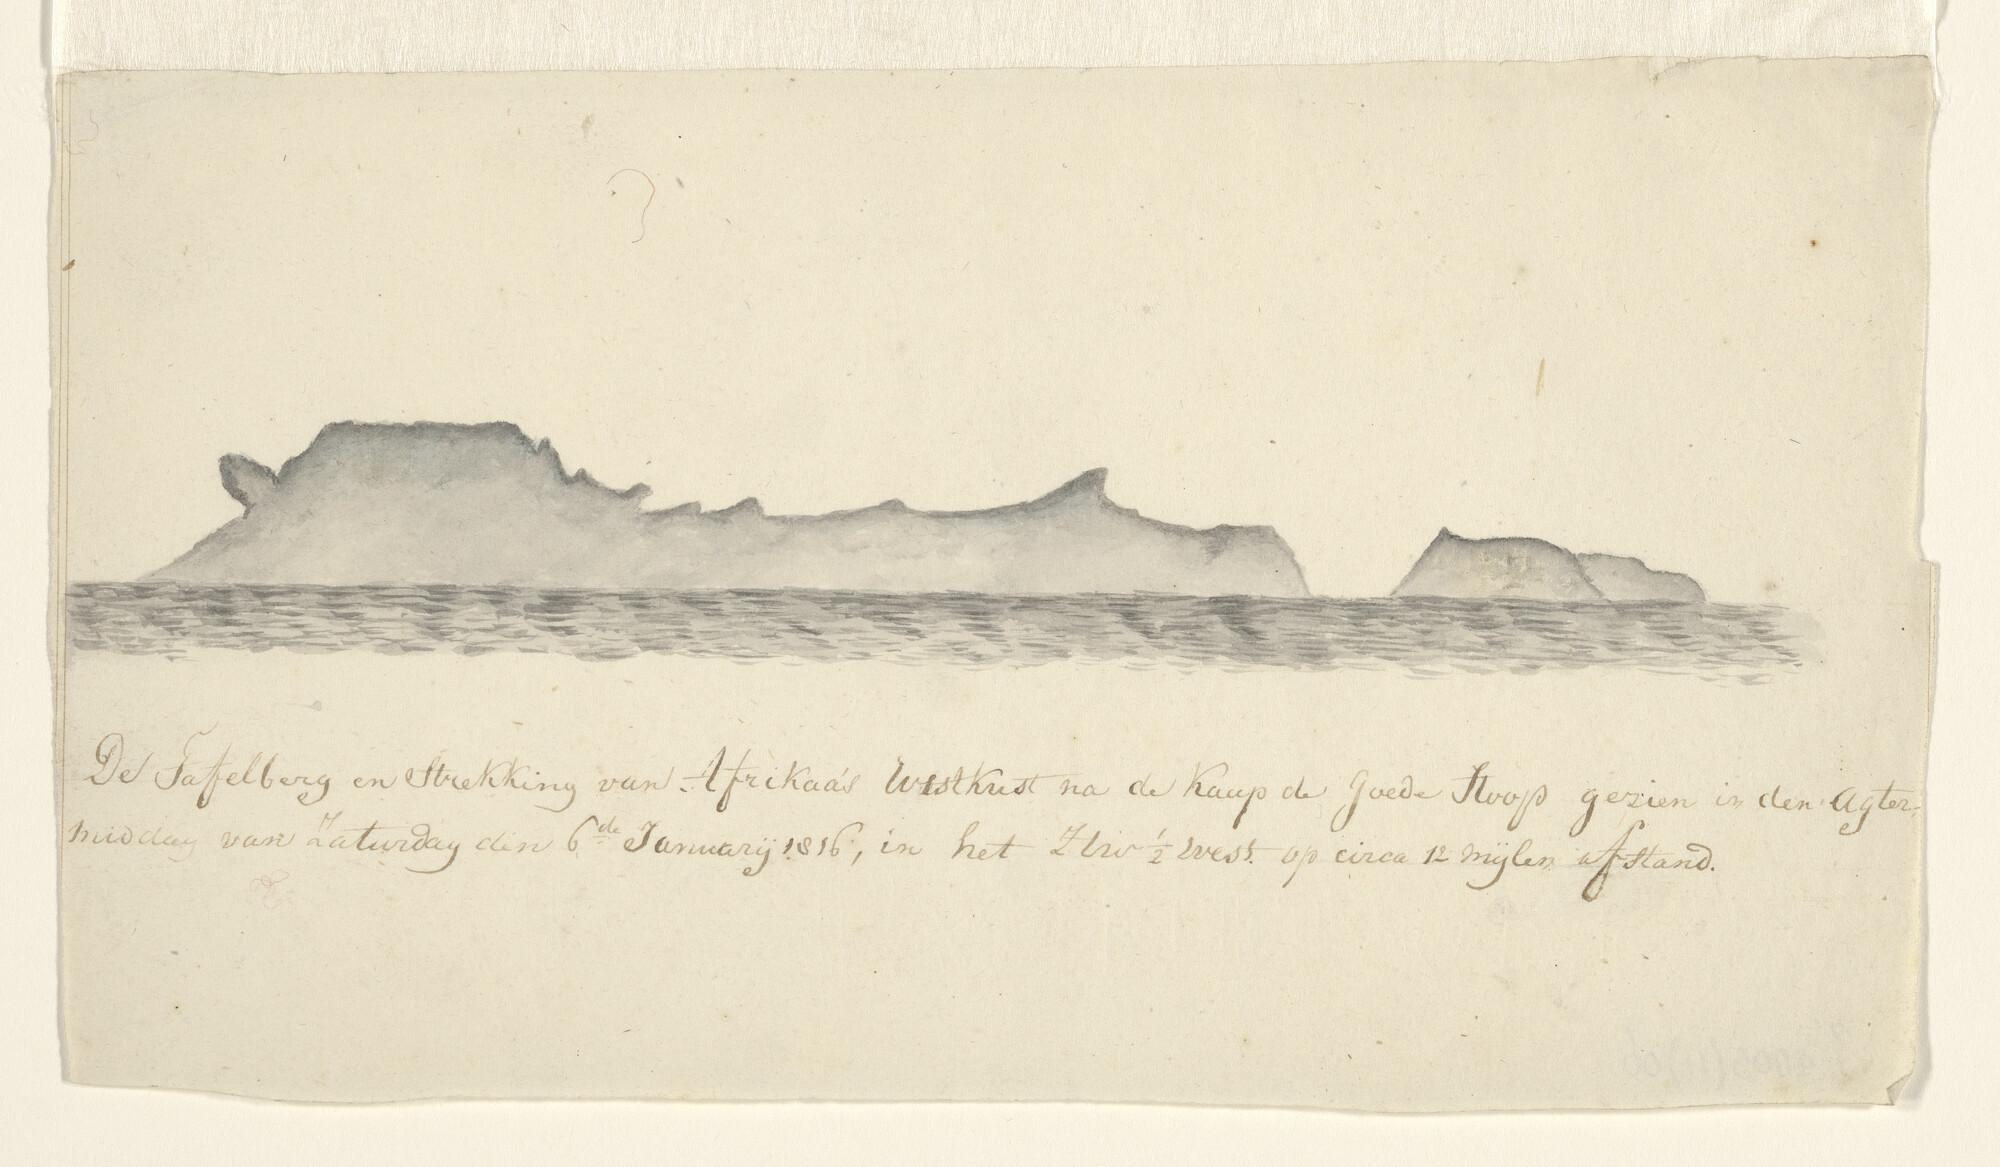 De Taffelberg en Strekking van Afrikaa's Westkust na de Kaap de Goede Hoop gezien in den Agter-
middag van Zaturdag den 6de Januarij 1816, in het ½ West op circa 12 mijlen afstand.